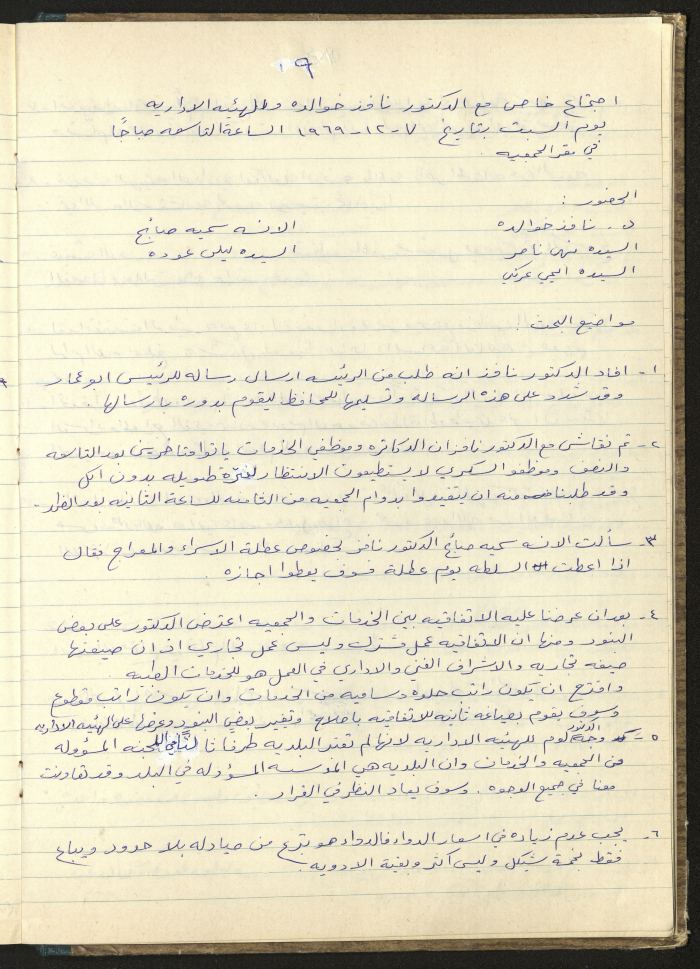 ١٩
اجتماع خاص مع الدكتور نافذ خوالده والهيئه الاداريه
يوم السبت بتاريخ ٧-١٢-١٩٦٩ الساعة التاسعه صباحًا
في مقر الجمعيه .
الحضور :
د. نافذ خوالده
الانسه سميه صايج
السيده نهى ناصر
السيده ليلى عوده
السيده ايمي عرنكي
مواضيع البحث :
١- افاد الدكتور نافذ انه طلب من الرئيسه ارسال رساله للرئيس ابو عمار
وقد شدد على هذه الرساله وتسليمها للمحافظ ليقوم بدوره بارسالها .
٢- تم نقاش مع الدكتور نافذ ان الدكاتره وموظفي الخدمات ياتوا متأخرين بعد التاسعه
والنصف وموظفو السكري لا يستطيعون الانتظار لفترة طويله بدون اكل
وقد طلبنا منه ان يتقيدوا بدوام الجمعيه من الثامنه للساعة الثانيه بعد الظهر .
٣- سألت الانسه سميه صايج الدكتور نافذ بخصوص عطلة الاسراء والمعراج فقال
اذا اعطت السلطه يوم عطلة فسوف يعطوا اجازه .
٤- بعد ان عرضنا عليه الاتفاقيه بين الخدمات والجمعيه اعترض الدكتور على بعض
البنود ومنها ان الاتفاقيه عمل مشترك وليس عمل تجاري اذ ان صيغتها
صيغه تجاريه والاشراف الفني والاداري في العمل هو للخدمات الطبيه
واقترح ان يكون راتب حلوه وساميه من الخدمات وان يكون راتب مقطوع
وسوف يقوم بصياغه ثانيه للاتفاقيه باصلاح وتغيير بعض البنود وعرضها على الهيئه الاداريه
٥- وجه الدكتور لوم للهيئه الاداريه لانها لم تعتبر البلديه طرفا ثالثا في اللجنه المسؤوله
من الجمعيه والخدمات وان البلديه هي المؤسسه المسؤوله في البلد وقد تعاونت
معنا في جميع الوجوه . وسوف يعاد النظر في القرار .
٦- يجب عدم زياده في اسعار الدواء فالدواء هو تبرع من صيادله بلا حدود ويباع
فقط بخمسة شيكل وليس أكثر وبقية الادويه .